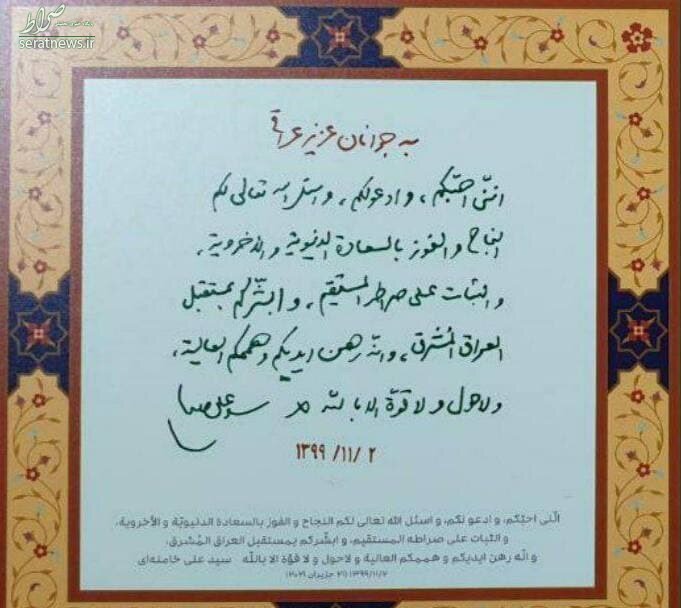 صراط
seratnews.ir
به جوانان عزیز عراقی
اننّی احبّکم، و ادعولکم، و اسئل الله تعالی لکم
النجاح و الفوز بالسعادة الدنیویة و الأخرویة،
و الثبات علی صراطه المستقیم، و ابشّرکم بمستقبل
العراق المُشرق، و انّه رهن ایدیکم و هممکم العالیة،
و لاحول و لا قوّة الا بالله
۱۳۹۹/۱۱/۲
انّنی احبّکم، و ادعو لکم، و اسئل الله تعالی لکم النجاح و الفوز بالسعادة الدنیویّة و الأخرویة،
و الثبات علی صراطه المستقیم، و ابشّرکم بمستقبل العراق المُشرق،
و انّه رهن ایدیکم و هممکم العالیة و لاحول و لا قوّة الا بالله سید علی خامنه‌ای
۱۳۹۹/۱۱/۲ (۲۱ حزیران ۲۰۲۱)